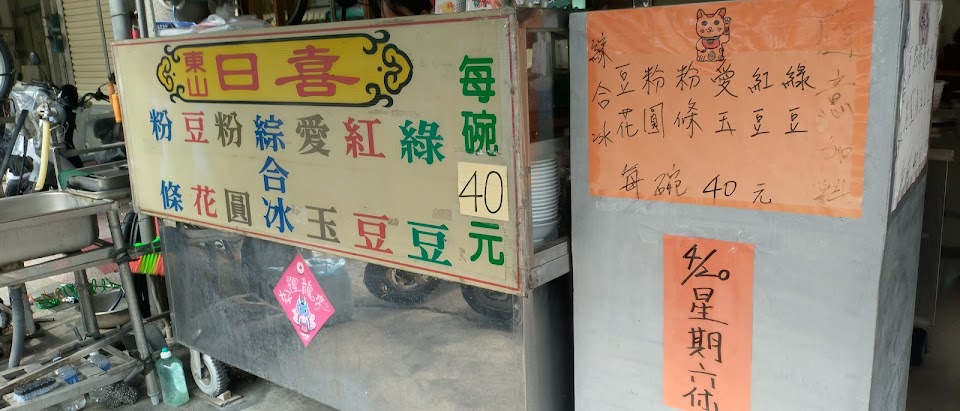 東山
日喜
每碗40元
綠豆
紅豆
愛玉
綜合冰
粉圓
豆花
粉條
綠豆
紅豆
愛玉
粉條
粉圓
豆花
綜合冰
每碗40元
4/20星期六休